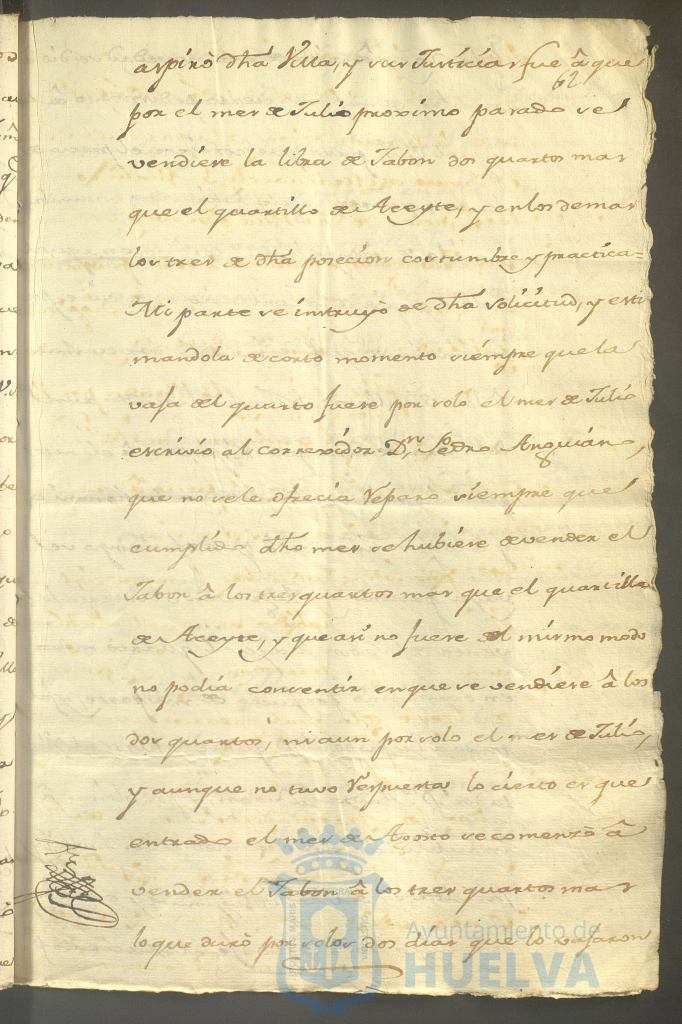 aspirò dhã Villa, y sus Justicias fue â que
62
por el mes de Julio proximo pasado se
vendiese la libra de Jabon dos quartos mas
que el quartillo de Aceyte, y en los demas
los tres de dhã posecion costumbre y practica=
Mi parte se instruyò de dhã solicitud, y esti
mandola de corto momento siempre que la
vaja del quarto fuese por solo el mes de Julio
escrivio al corregidor Dn. Pedro Anguiano,
que no se le ofrecia reparo siempre que
cumplido dho mes se hubiese de vender el
Jabon â los tres quartos mas que el quartillo
de Aceyte, y que asi no fuese del mismo modo
no podia consentir en que se vendiese â los
dos quartos, ni aun por solo el mes de Julio,
y aunque no tuvo respuesta lo cierto es que
entrado el mes de Agosto se comenzò â
vender el Jabon â los tres quartos mas
lo que durò por solos dos dias que lo vajaron
Ayuntamiento de
HUELVA